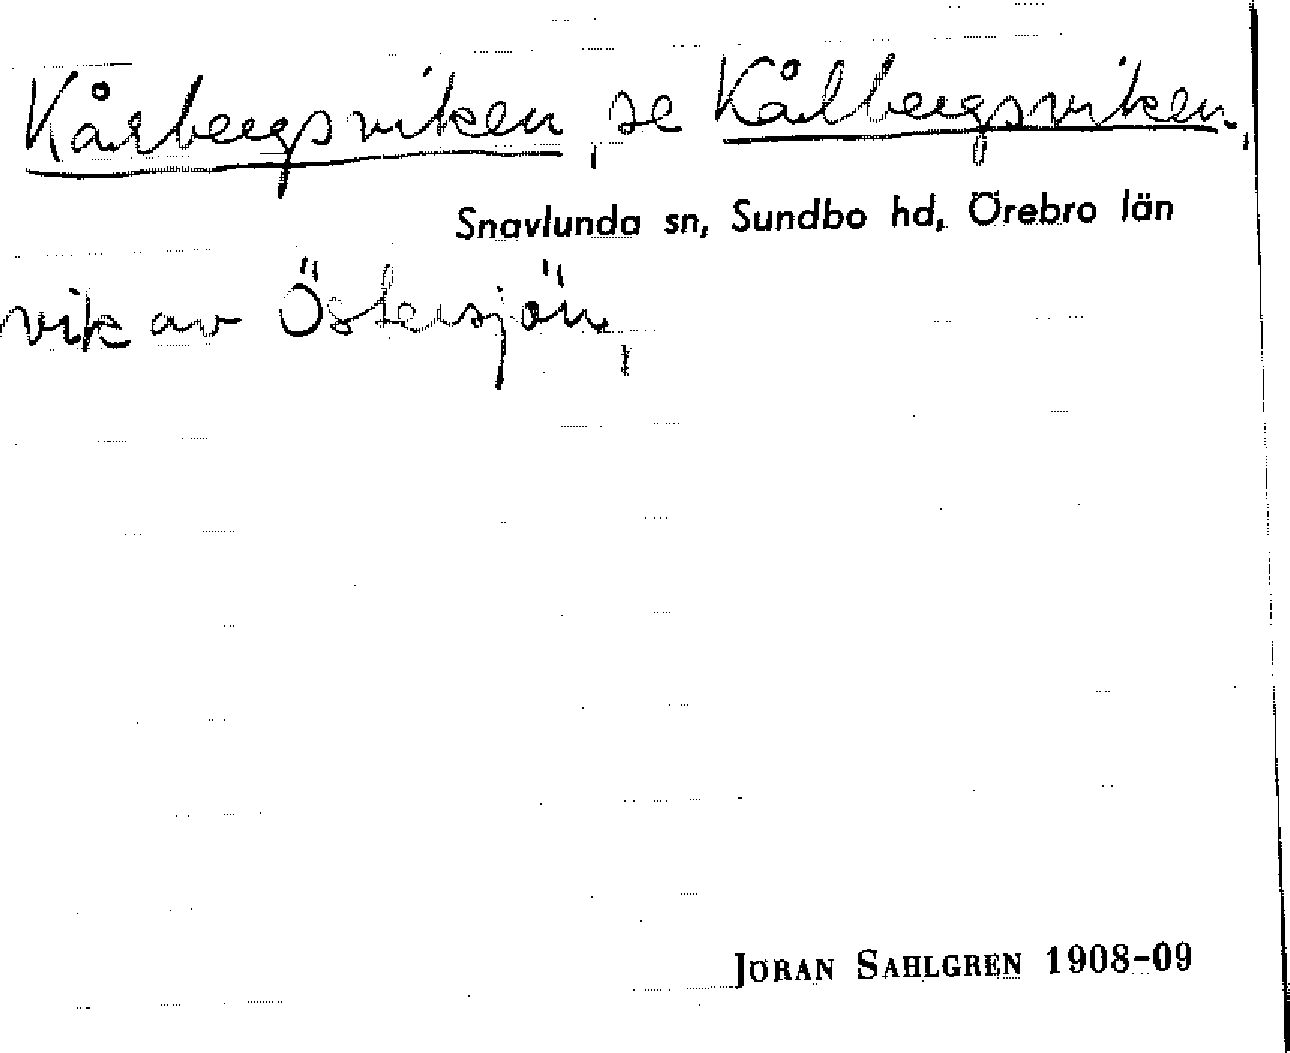 Kårbergsviken, se Kålbergsviken,
Snavlunda sn, Sundbo hd, Örebro län
vik av Östersjön,
JÖRAN SAHLGREN 1908-09